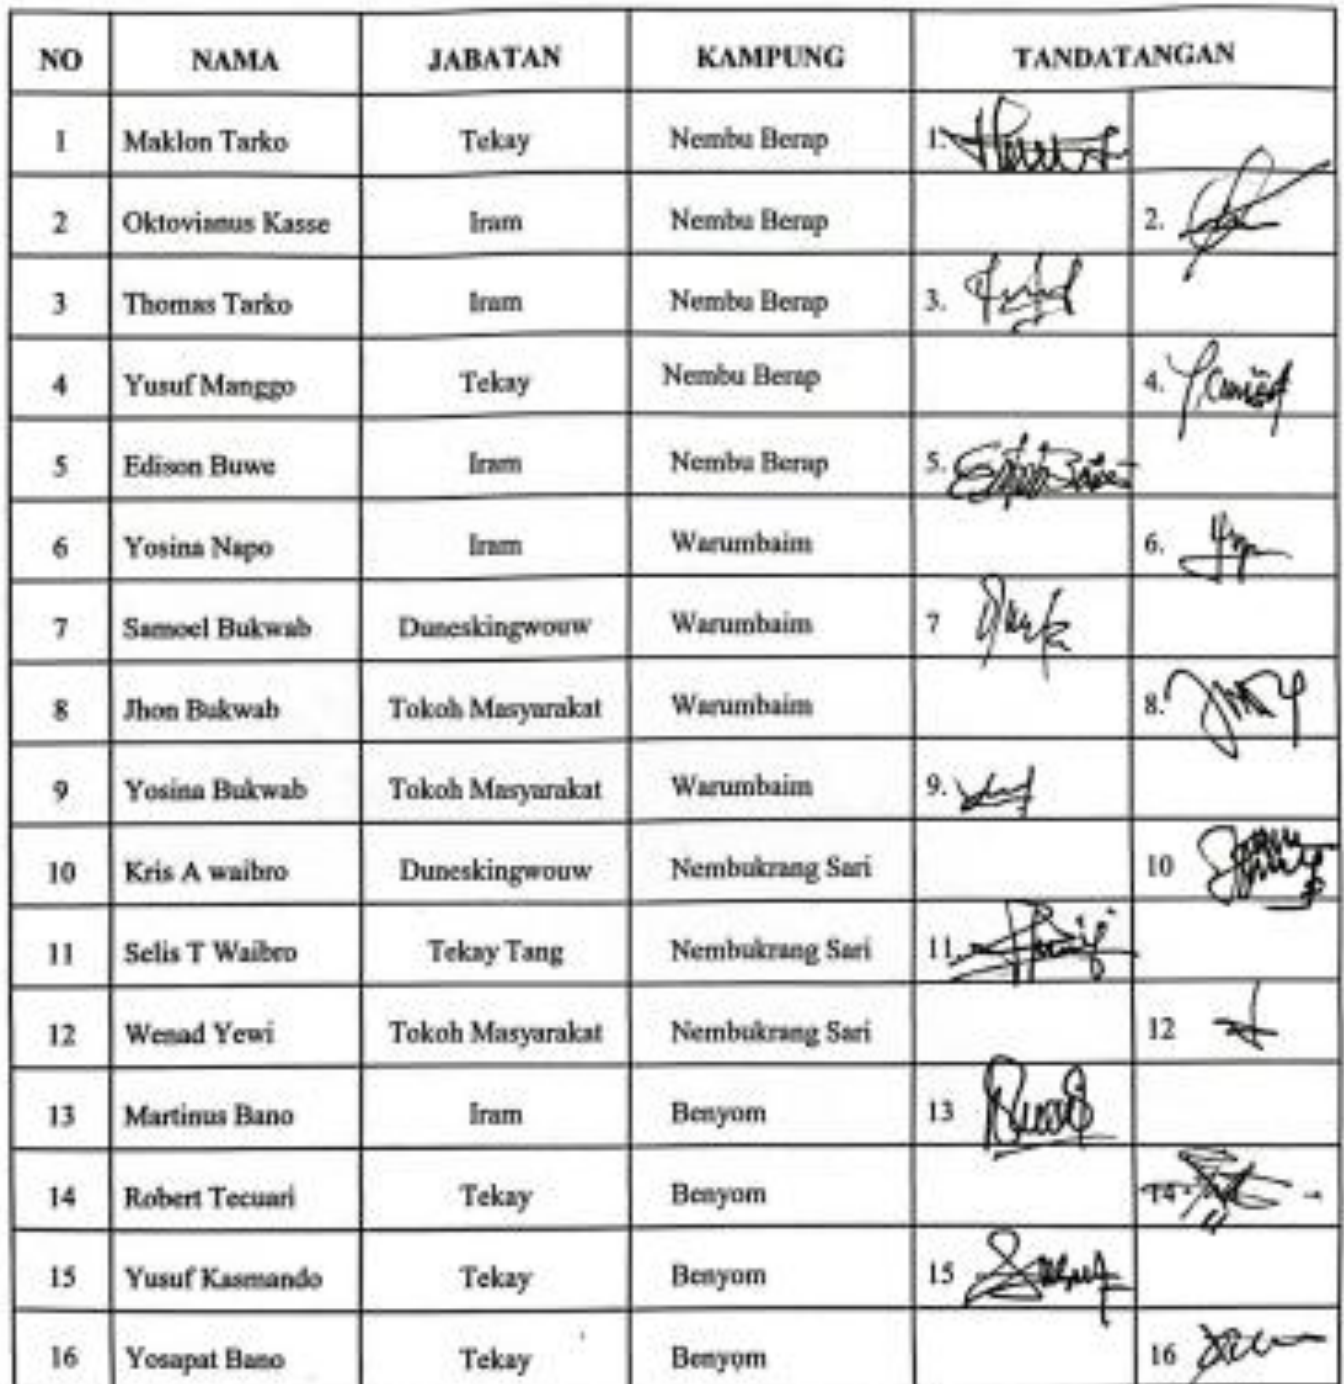 NO NAMA JABATAN KAMPUNG TANDATANGAN
1 Maklon Tarko Tekay Nembu Berap 1.
2 Oktovianus Kasse Iram Nembu Berap 2.
3 Thomas Tarko Iram Nembu Berap 3.
4 Yusuf Manggo Tekay Nembu Berap 4.
5 Edison Buwe Iram Nembu Berap 5.
6 Yosina Napo Iram Warumbaim 6.
7 Samoel Bukwab Duneskingwouw Warumbaim 7
8 Jhon Bukwab Tokoh Masyarakat Warumbaim 8.
9 Yosina Bukwab Tokoh Masyarakat Warumbaim 9.
10 Kris A waibro Duneskingwouw Nembukrang Sari 10
11 Selis T Waibro Tekay Tang Nembukrang Sari 11.
12 Wenad Yewi Tokoh Masyarakat Nembukrang Sari 12
13 Martinus Bano Iram Benyom 13
14 Robert Tecuari Tekay Benyom 14
15 Yusuf Kasmando Tekay Benyom 15
16 Yosapat Bano Tekay Benyom 16